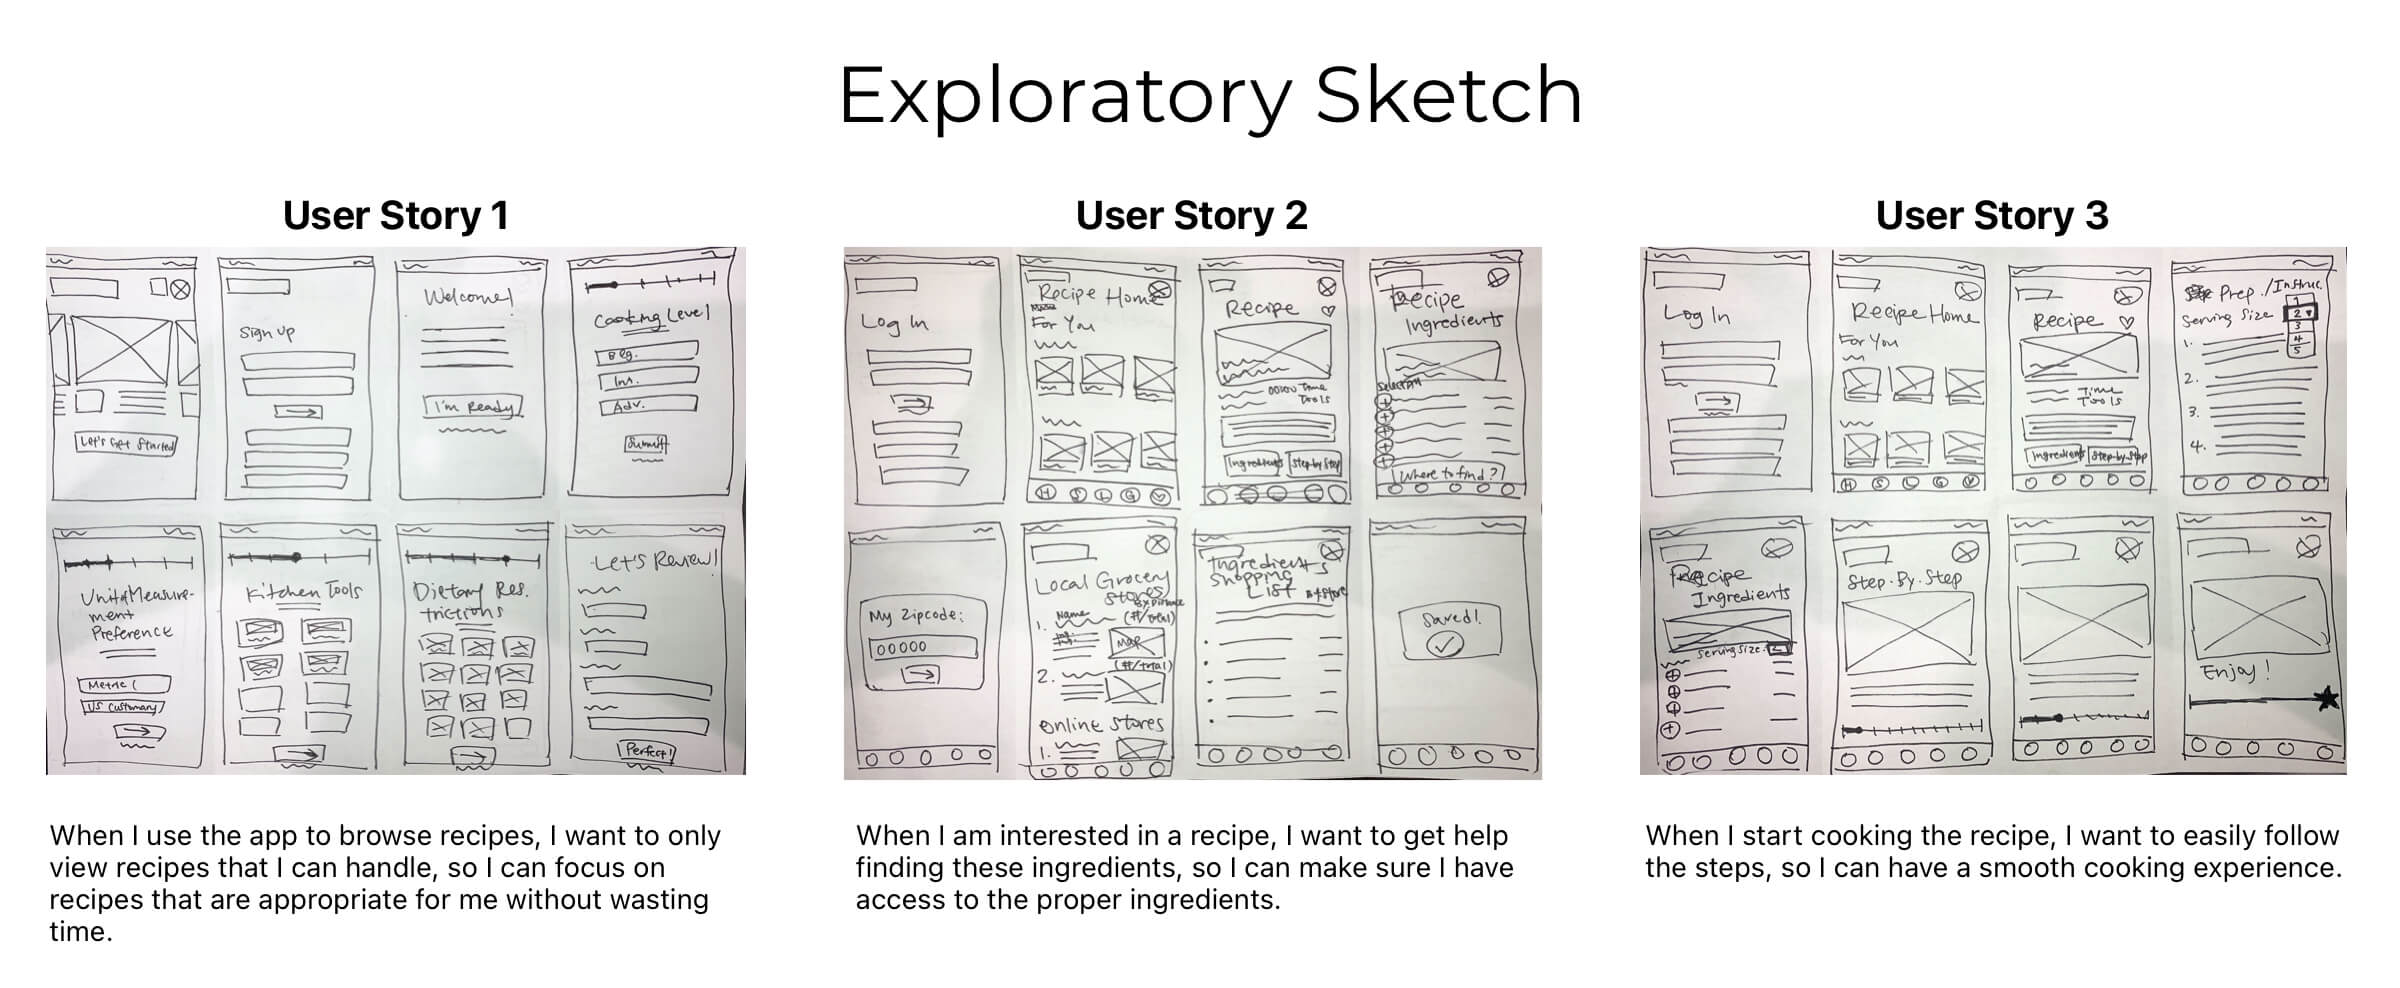 Exploratory Sketch
User Story 1
Let's Get Started
Sign Up
Welcome!
I'm Ready
Cooking Level
Beg.
Int.
Adv.
Submit
Unit of Measure-
ment
Preference
Metric
US Customary
Kitchen Tools
Dietary Res.
trictions
Let's Review!
Perfect!
When I use the app to browse recipes, I want to only
view recipes that I can handle, so I can focus on
recipes that are appropriate for me without wasting
time.
User Story 2
Log In
Recipe Home
For You
H S L G
Recipe
Time
Tools
Ingredients
Step by Step
Recipe
Ingredients
Selection
Where to find?
My Zipcode:
00000
Local Grocery
Stores
By Distance
1. Name
(#/total)
Map
(#/total)
2.
Online Stores
1.
Ingredients
Shopping
List
By Store
Saved!
When I am interested in a recipe, I want to get help
finding these ingredients, so I can make sure I have
access to the proper ingredients.
User Story 3
Log In
Recipe Home
For You
H S L G
Recipe
Time
Tools
Ingredients
Step-by-Step
Prep./Instruc.
Serving Size
1
2
3
4
5
1.
2.
3.
4.
Recipe
Ingredients
Serving Size: 2
Step-By-Step
Enjoy!
When I start cooking the recipe, I want to easily follow
the steps, so I can have a smooth cooking experience.